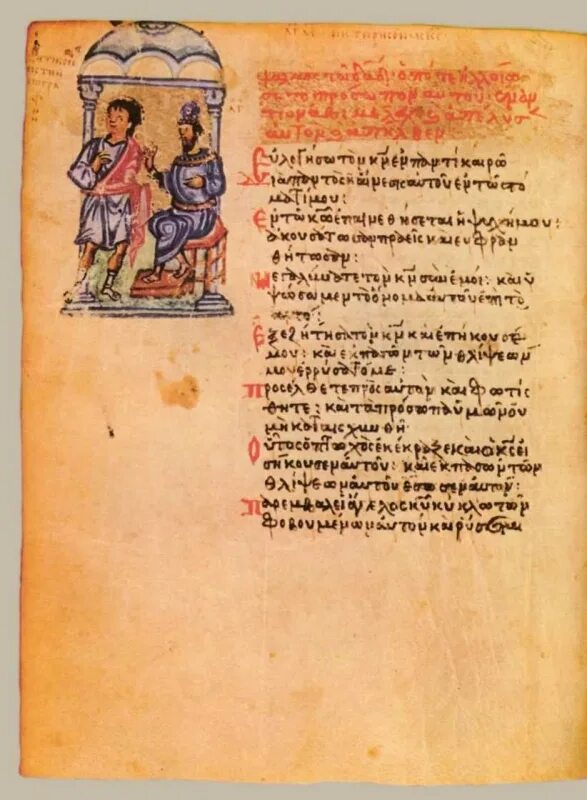 ψαλμὸς τῶι δαδ ὁπότε ἠλλοίω
σε τὸ πρόσωπον αὐτοῦ ἐναν
τίον ἀβιμέλεχ ἀπέλυσ
αὐτὸν ἀπῆλθεν
Εὐλογήσω τὸν κν ἐν παντὶ καιρῶ
διαπαντὸς ἡ αἴνεσις αὐτοῦ ἐν τῶ στό
ματί μου:
Ἐν τῶ κω ἐπαινεθήσεται ἡ ψυχή μου:
ἀκουσάτωσαν πραεῖς καὶ εὐφραν
θήτωσαν:
Μεγαλύνατε τὸν κν σὺν ἐμοί: καὶ ὑ
ψώσωμεν τὸ ὄνομα αὐτοῦ ἐπὶ τὸ
αὐτό:
Ἐξεζήτησα τὸν κν καὶ ἐπήκουσέ
μου: καὶ ἐκ πασῶν τῶν θλίψεών
μου ἐρρύσατό με:
Προσέλθετε πρὸς αὐτὸν καὶ φωτίσ
θητε: καὶ τὰ πρόσωπα ὑμῶν οὐ
μὴ καταισχυνθῆ:
Οὗτος ὁ πτωχὸς ἐκέκραξε καὶ ὁ κς εἰ
σήκουσεν αὐτοῦ: καὶ ἐκ πασῶν τῶν
θλίψεων αὐτοῦ ἔσωσεν αὐτόν:
Παρεμβαλεῖ ἄγγελος κυ κύκλω τῶν
φοβουμένων αὐτὸν καὶ ῥύσεται